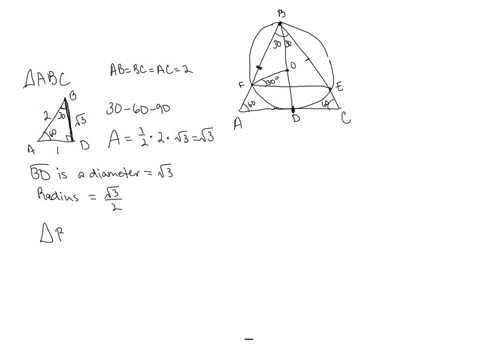 △ABC
AB=BC=AC=2
B
2
30
√3
A
60
1
D
30-60-90
A = 1/2 · 2 · √3 = √3
BD is a diameter = √3
Radius = √3/2
△
B
30
30
O
F
30°
E
A
60
D
60
C